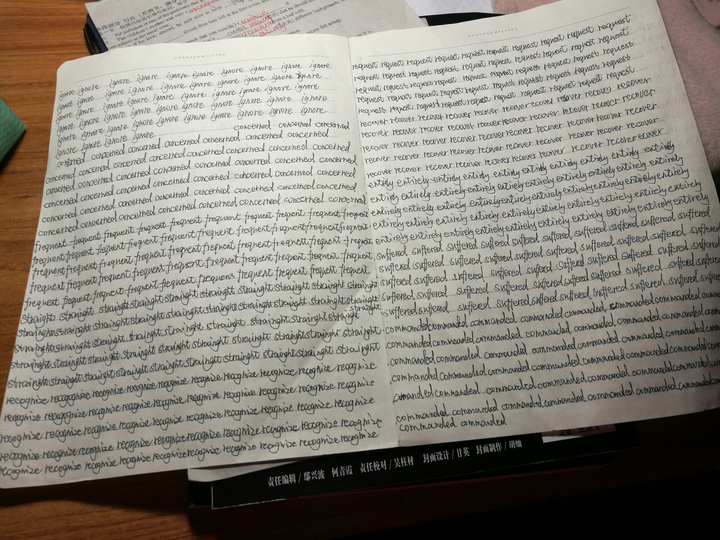 ignore ignore ignore ignore ignore ignore ignore ignore
ignore ignore ignore ignore ignore ignore ignore ignore
ignore ignore ignore ignore ignore ignore ignore ignore
ignore ignore ignore ignore ignore ignore ignore ignore
ignore ignore ignore ignore ignore ignore ignore ignore
ignore ignore ignore ignore concerned concerned concerned
concerned concerned concerned concerned concerned concerned concerned
concerned concerned concerned concerned concerned concerned concerned
concerned concerned concerned concerned concerned concerned concerned
concerned concerned concerned concerned concerned concerned concerned
concerned concerned concerned concerned concerned concerned concerned
frequent frequent frequent frequent frequent frequent frequent frequent
frequent frequent frequent frequent frequent frequent frequent frequent
frequent frequent frequent frequent frequent frequent frequent frequent
frequent frequent frequent frequent frequent frequent frequent frequent
frequent frequent frequent frequent frequent frequent frequent frequent
straight straight straight straight straight straight straight straight straight
straight straight straight straight straight straight straight straight straight
straight straight straight straight straight straight straight straight straight
straight straight straight straight straight straight straight straight straight
recognize recognize recognize recognize recognize recognize recognize recognize
recognize recognize recognize recognize recognize recognize recognize recognize
recognize recognize recognize recognize recognize recognize recognize recognize
recognize recognize recognize recognize recognize recognize recognize recognize
recognize recognize recognize recognize recognize recognize recognize recognize
request request request request request request request request request request
request request request request request request request request request request
request request request request request request request request request request
request request request request request request request request request request
request request request request request request request request request request
recover recover recover recover recover recover recover recover recover recover
recover recover recover recover recover recover recover recover recover recover
recover recover recover recover recover recover recover recover recover recover
recover recover recover recover recover recover recover recover recover recover
recover recover recover recover recover recover recover recover recover recover
entirely entirely entirely entirely entirely entirely entirely entirely entirely
entirely entirely entirely entirely entirely entirely entirely entirely entirely
entirely entirely entirely entirely entirely entirely entirely entirely entirely
entirely entirely entirely entirely entirely entirely entirely entirely entirely
entirely entirely entirely entirely entirely entirely entirely entirely entirely
suffered suffered suffered suffered suffered suffered suffered suffered suffered
suffered suffered suffered suffered suffered suffered suffered suffered suffered
suffered suffered suffered suffered suffered suffered suffered suffered suffered
suffered suffered suffered suffered suffered suffered suffered suffered suffered
commanded commanded commanded commanded commanded commanded commanded commanded
commanded commanded commanded commanded commanded commanded commanded commanded
commanded commanded commanded commanded commanded commanded commanded commanded
commanded commanded commanded commanded commanded commanded commanded commanded
commanded commanded commanded commanded commanded commanded commanded commanded
commanded commanded commanded commanded commanded commanded commanded
commanded commanded
责任编辑 / 鄢兴波 何青霞 责任校对 / 吴柱材 封面设计 / 甘英 封面制作 / 胡灿